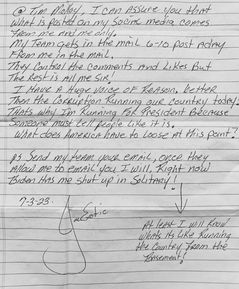 @ Tim Moloy, I can assure you that
what is posted on my social media comes
from me and me only.
My team gets in the mail 6-10 post a day
from me in the mail.
They control the comments and likes but
the rest is all me sir!
I have a huge voice of reason, better
then the corruption running our country today.
Thats why I'm running for president because
someone must tell people like it is.
What does America have to loose at this point!
PS Send my team your email, once they
allow me to email you I will. Right now
Biden has me shut up in solitary!
7-3-23
Joe Exotic
At least I will know
whats its like running
the country from the
basement!